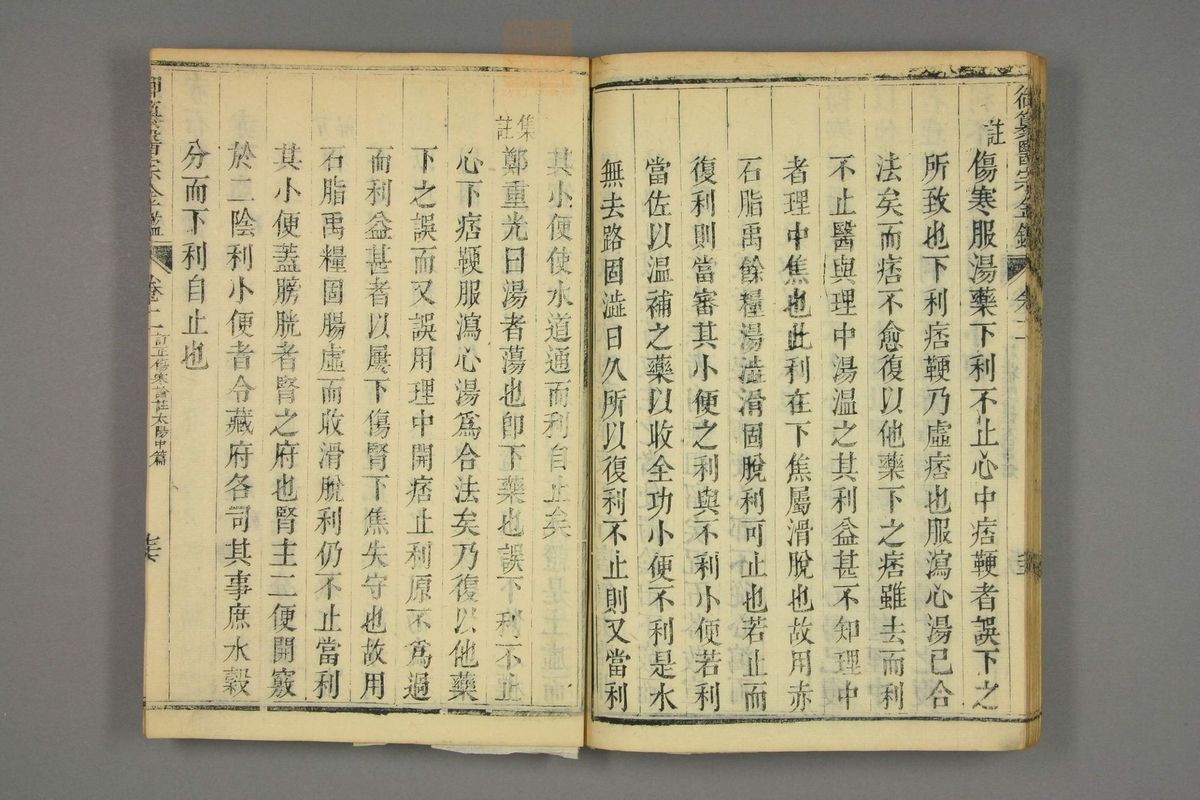 御纂醫宗金鑑
卷二
註
傷寒服湯藥下利不止心中痞鞕者誤下之
所致也下利痞鞕乃虛痞也服瀉心湯已合
法矣而痞不愈復以他藥下之痞雖去而利
不止醫與理中湯溫之其利益甚不知理中
者理中焦也此利在下焦屬滑脫也故用赤
石脂禹餘糧湯澁滑固脫利可止也若止而
復利則當審其小便之利與不利小便若利
當佐以溫補之藥以收全功小便不利是水
無去路固澁日久所以復利不止則又當利
其小便使水道通而利自止矣
集註
鄭重光曰湯者蕩也卽下藥也誤下利不止
心下痞鞕服瀉心湯爲合法矣乃復以他藥
下之誤而又誤用理中開痞止利原不爲過
而利益甚者以屢下傷腎下焦失守也故用
石脂禹糧固腸虛而收滑脫利仍不止當利
其小便蓋膀胱者腎之府也腎主二便開竅
於二陰利小便者令藏府各司其事庶水穀
分而下利自止也
御纂醫宗金鑑
卷二
訂正傷寒論註太陽中篇